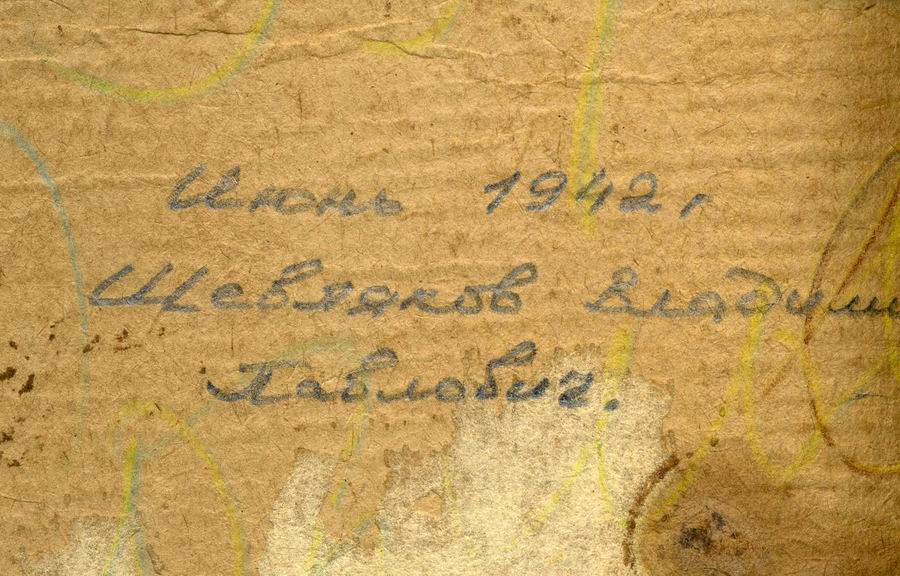 Июнь 1942г
Шевляков Владими
Павлович.